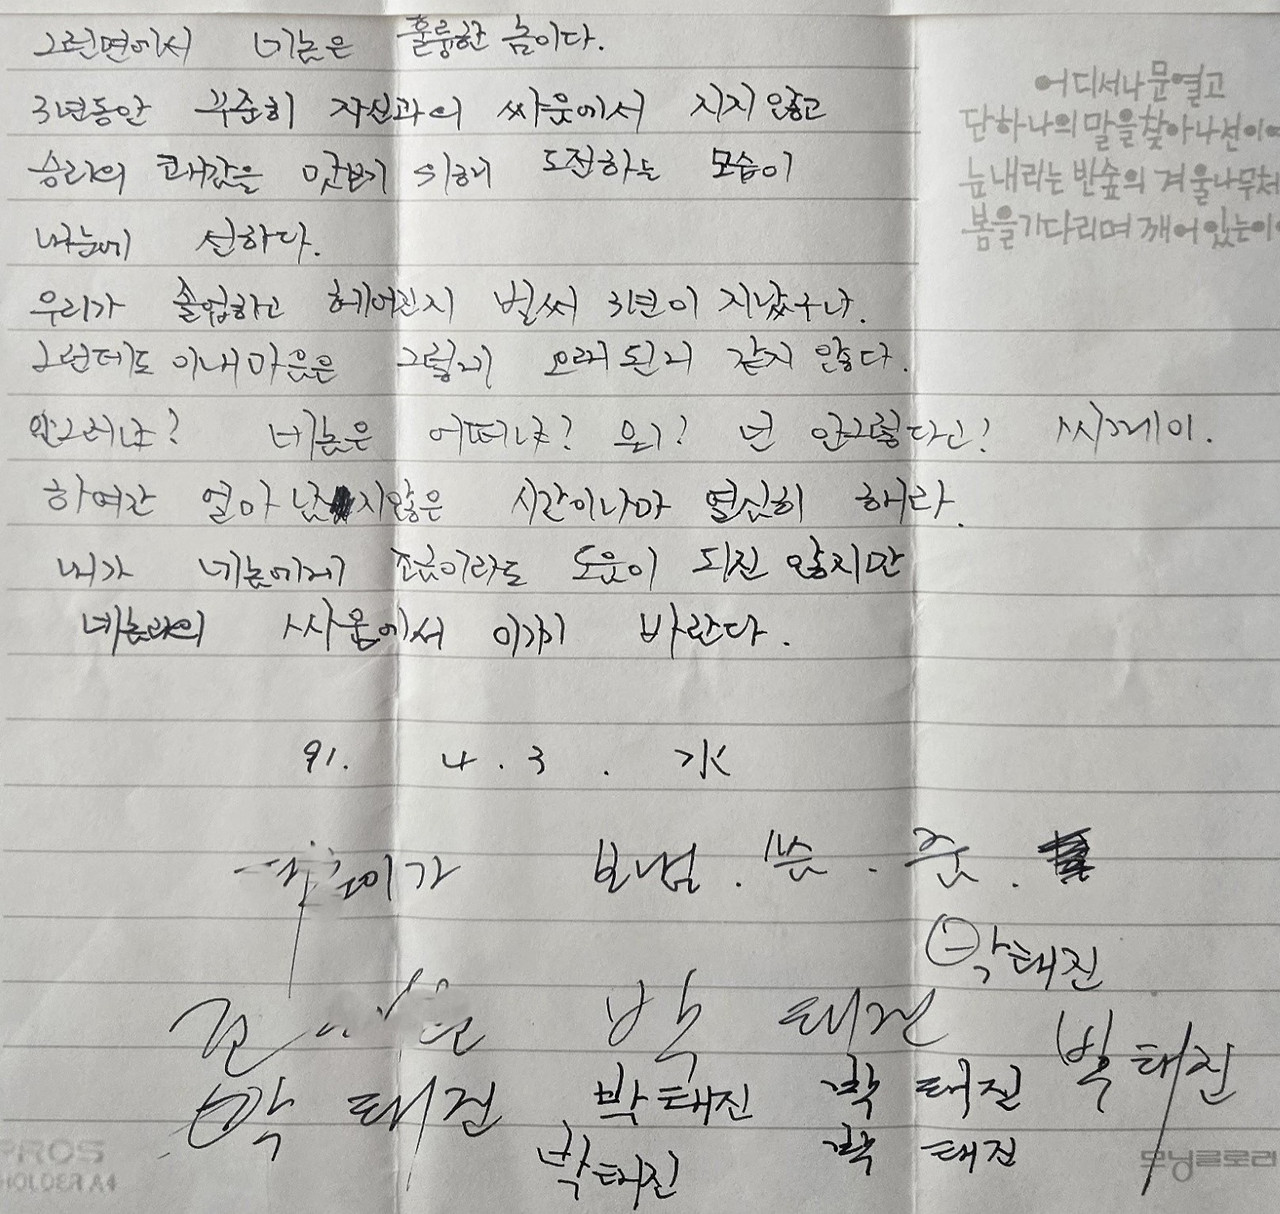 그런면에서 네놈은 훌륭한 놈이다.
3년동안 꾸준히 자신과의 싸움에서 지지 않고
승리의 쾌감을 맛보기 위해 도전하는 모습이
내눈에 선하다.
우리가 졸업하고 헤어진지 벌써 3년이 지났구나.
그런데도 이내 마음은 그렇게 오래된거 같지 않다.
안그러냐? 네놈은 어떠냐? 뭐? 넌 안그렇다고? 씨
하여간 얼마 남지않은 시간이나마 열심히 해라.
내가 네놈에게 조금이라도 도움이 되진 않지만
네놈과의 싸움에서 이기기 바란다.
91. 4. 3. 水
가 보냄. 씀. 줌.
박태진
박 태진
박태진
박 태진
박태진
박 태진
박태진
박 태진
어디서나 문 열고
단 하나의 말을 찾아나선 이
눈 내리는 반숲의 겨울나무처
봄을 기다리며 깨어 있는 이
PROS
HOLDER A4
모닝글로리